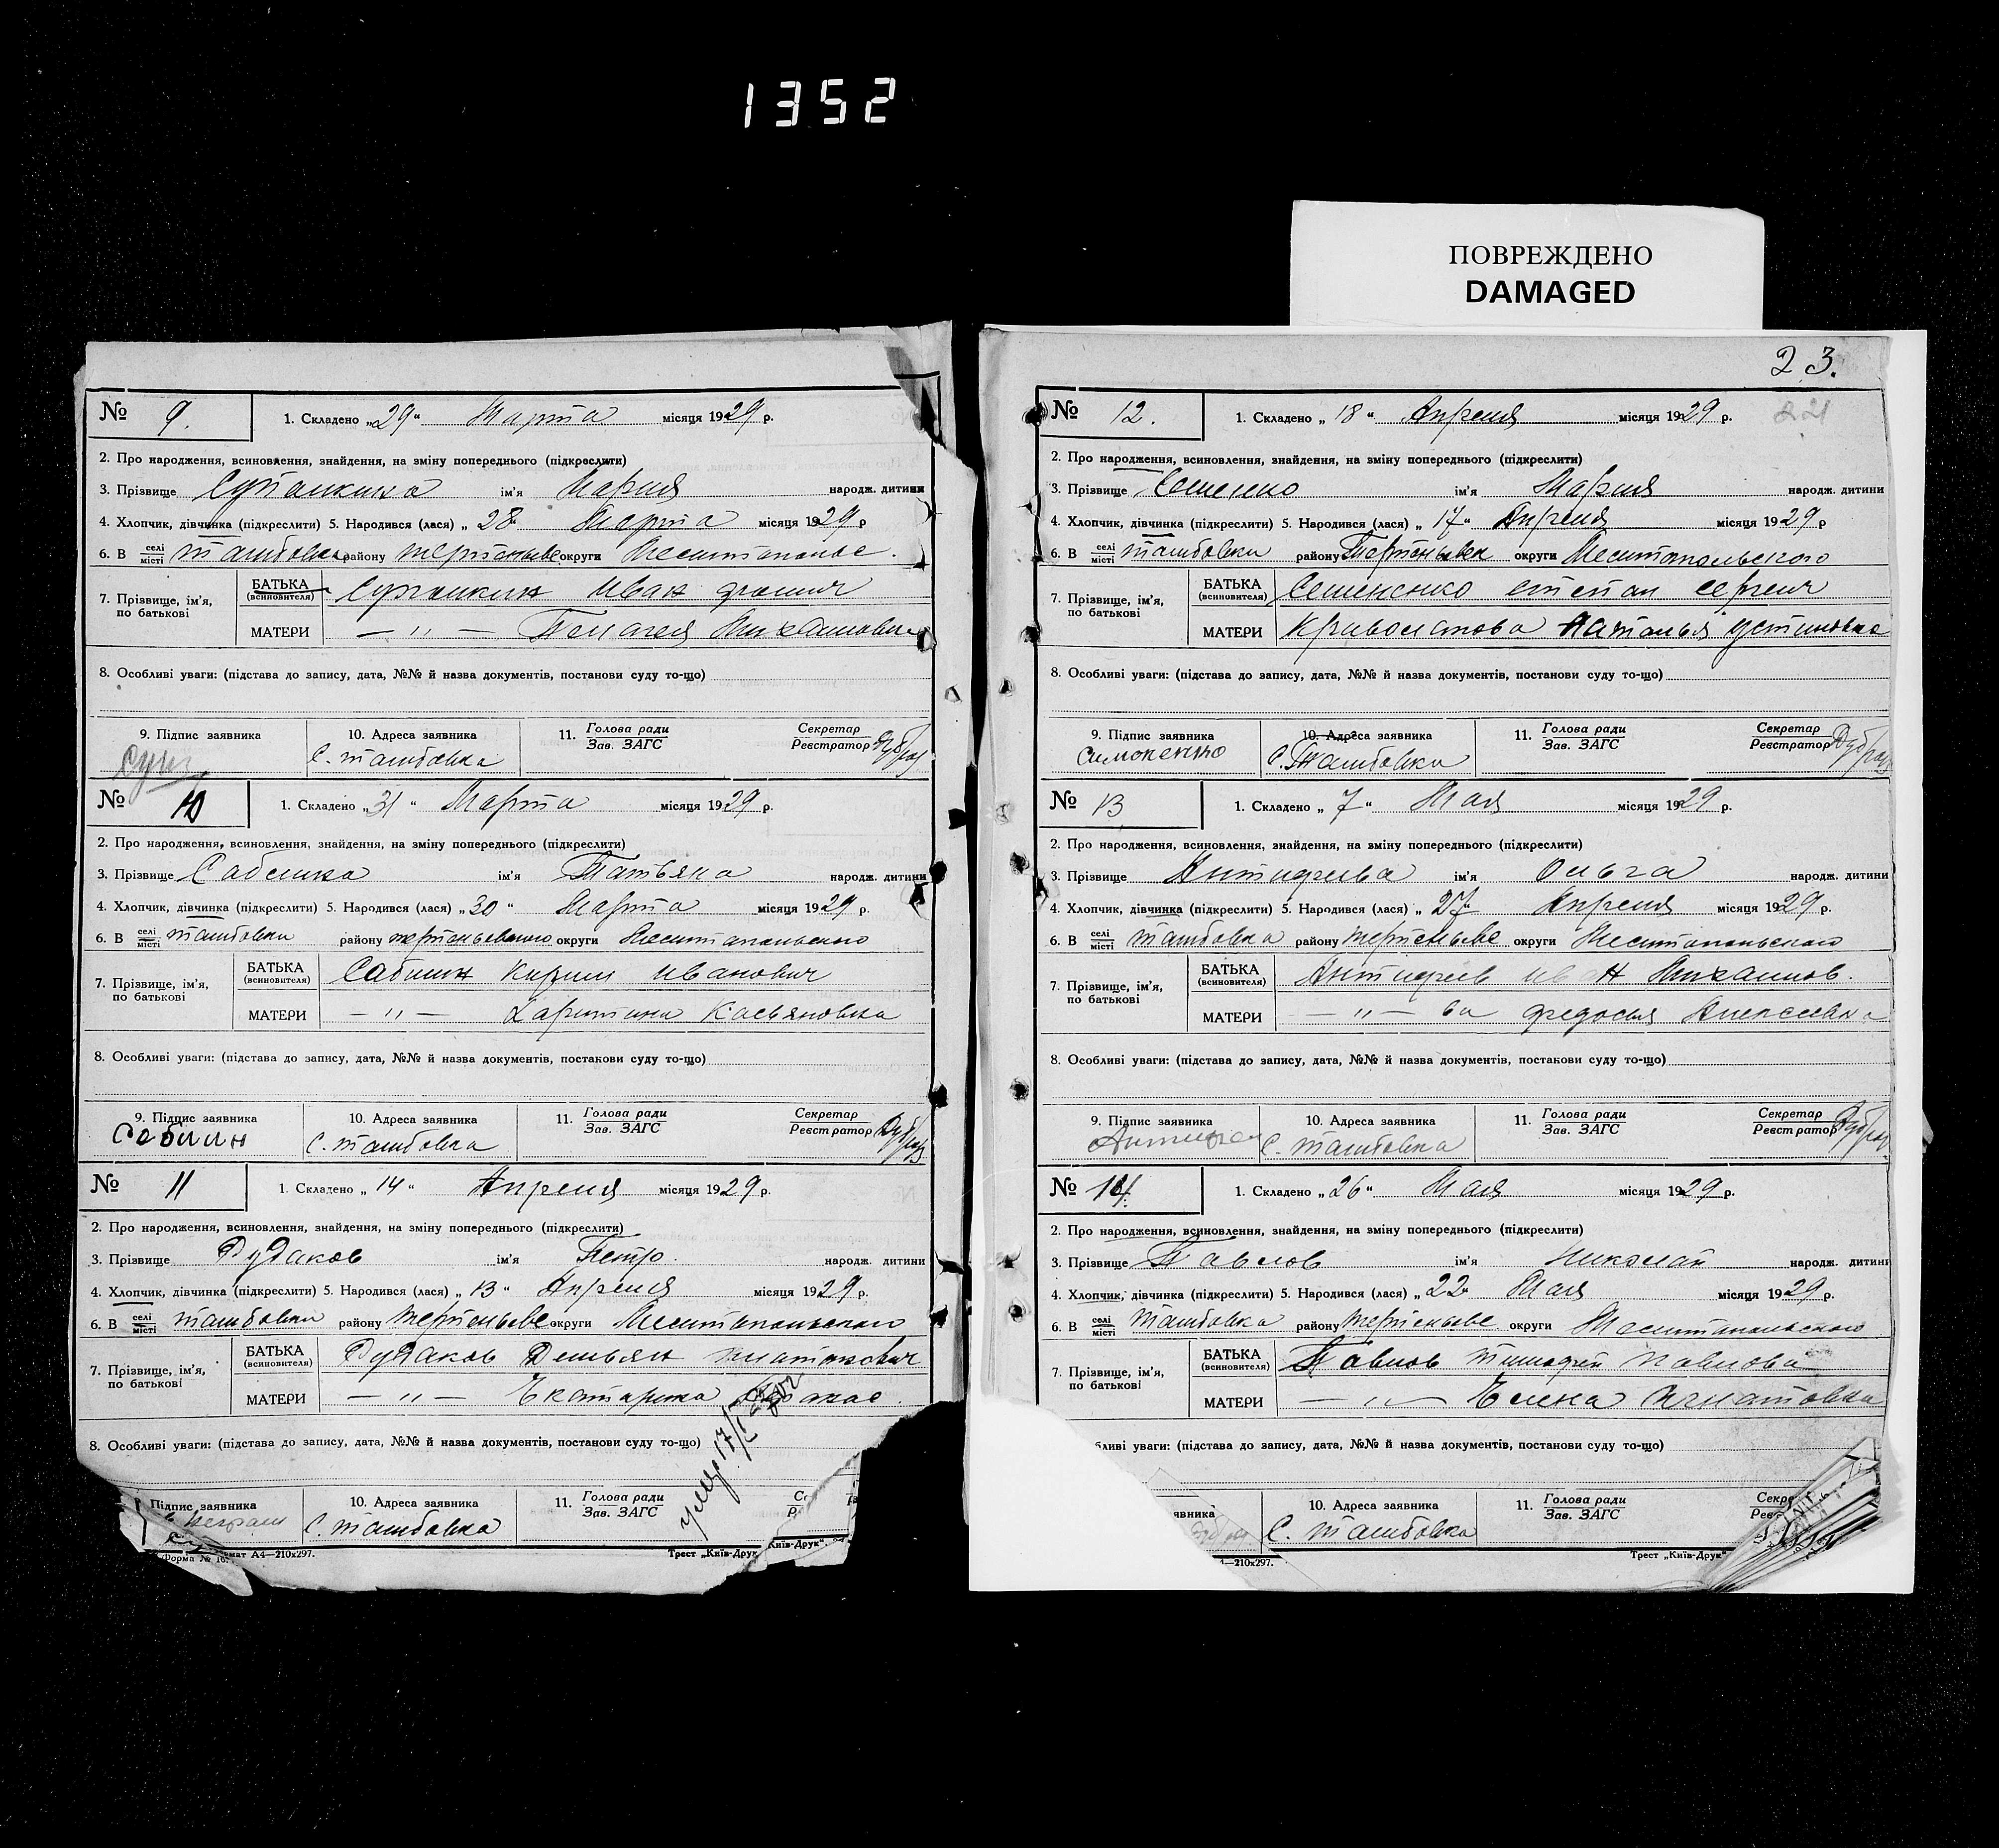 1352
ПОВРЕЖДЕНО
DAMAGED
№ 9. 1. Складено „29“ Марта місяця 1929 р.
2. Про народження, всиновлення, знайдення, на зміну попереднього (підкреслити)
3. Прізвище ім'я Мария народж. дитини
4. Хлопчик, дівчинка (підкреслити) 5. Народився (лася) „28“ Марта місяця 1929 р
6. В селі місті району округи
7. Прізвище, ім'я, по батькові
БАТЬКА (всиновителя) Иван
МАТЕРИ — " — Пелагея
8. Особливі уваги: (підстава до запису, дата, №№ й назва документів, постанови суду то-що)
9. Підпис заявника 10. Адреса заявника 11. Голова ради Зав. ЗАГС Секретар Реєстратор
С. Ташбовка
№ 10 1. Складено „31“ Марта місяця 1929 р.
2. Про народження, всиновлення, знайдення, на зміну попереднього (підкреслити)
3. Прізвище Саблина ім'я Татьяна народж. дитини
4. Хлопчик, дівчинка (підкреслити) 5. Народився (лася) „30“ Марта місяця 1929 р.
6. В селі місті Ташбовки району округи Мелитопольского
7. Прізвище, ім'я, по батькові
БАТЬКА (всиновителя) Саблин Кирил Иванович
МАТЕРИ — " — Харитина Касьяновна
8. Особливі уваги: (підстава до запису, дата, №№ й назва документів, постанови суду то-що)
9. Підпис заявника 10. Адреса заявника 11. Голова ради Зав. ЗАГС Секретар Реєстратор
Саблин С. Ташбовка
№ 11 1. Складено „14“ Апреля місяця 1929 р.
2. Про народження, всиновлення, знайдення, на зміну попереднього (підкреслити)
3. Прізвище Рудаков ім'я Петро. народж. дитини
4. Хлопчик, дівчинка (підкреслити) 5. Народився (лася) „13“ Апреля місяця 1929 р.
6. В селі місті Ташбовки району округи Мелитопольского
7. Прізвище, ім'я, по батькові
БАТЬКА (всиновителя) Рудаков Демьян
МАТЕРИ — " —
8. Особливі уваги: (підстава до запису, дата, №№ й назва документів, постанови суду то-що)
Підпис заявника 10. Адреса заявника 11. Голова ради Зав. ЗАГС
С. Ташбовка
Форма № 16. Формат А4—210x297. Трест „Київ-Друк Київ-Друк“.
23.
№ 12. 1. Складено „18“ Апреля місяця 1929 р.
2. Про народження, всиновлення, знайдення, на зміну попереднього (підкреслити)
3. Прізвище ім'я Мария народж. дитини
4. Хлопчик, дівчинка (підкреслити) 5. Народився (лася) „17“ Апреля місяця 1929 р
6. В селі місті Ташбовки району округи Мелитопольского
7. Прізвище, ім'я, по батькові
БАТЬКА (всиновителя) Степан Сергеич
МАТЕРИ Наталья Устиновна
8. Особливі уваги: (підстава до запису, дата, №№ й назва документів, постанови суду то-що)
9. Підпис заявника 10. Адреса заявника 11. Голова ради Зав. ЗАГС Секретар Реєстратор
Симоненко С. Ташбовка
№ 13 1. Складено „7“ Мая місяця 1929 р.
2. Про народження, всиновлення, знайдення, на зміну попереднього (підкреслити)
3. Прізвище ім'я Ольга народж. дитини
4. Хлопчик, дівчинка (підкреслити) 5. Народився (лася) „27“ Апреля місяця 1929 р.
6. В селі місті Ташбовка району округи Мелитопольского
7. Прізвище, ім'я, по батькові
БАТЬКА (всиновителя) Иван Михаилов.
МАТЕРИ — " — ва Федосья Алексеевна
8. Особливі уваги: (підстава до запису, дата, №№ й назва документів, постанови суду то-що)
9. Підпис заявника 10. Адреса заявника 11. Голова ради Зав. ЗАГС Секретар Реєстратор
С. Ташбовка
№ 14. 1. Складено „26“ Мая місяця 1929 р.
2. Про народження, всиновлення, знайдення, на зміну попереднього (підкреслити)
3. Прізвище Павлов ім'я Николай народж. дитини
4. Хлопчик, дівчинка (підкреслити) 5. Народився (лася) „22“ Мая місяця 1929 р.
6. В селі місті Ташбовка району округи Мелитопольского
7. Прізвище, ім'я, по батькові
БАТЬКА (всиновителя) Павлов Тимофей
МАТЕРИ — " — Елена Игнатовна
бливі уваги: (підстава до запису, дата, №№ й назва документів, постанови суду то-що)
явника 10. Адреса заявника 11. Голова ради Зав. ЗАГС
С. Ташбовка
4—210x297. Трест „Київ-Друк“